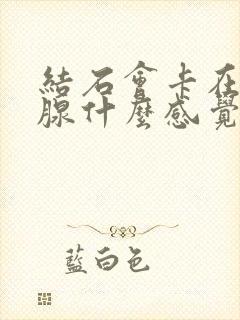 結石會卡在
腺什麼感覺
藍白色